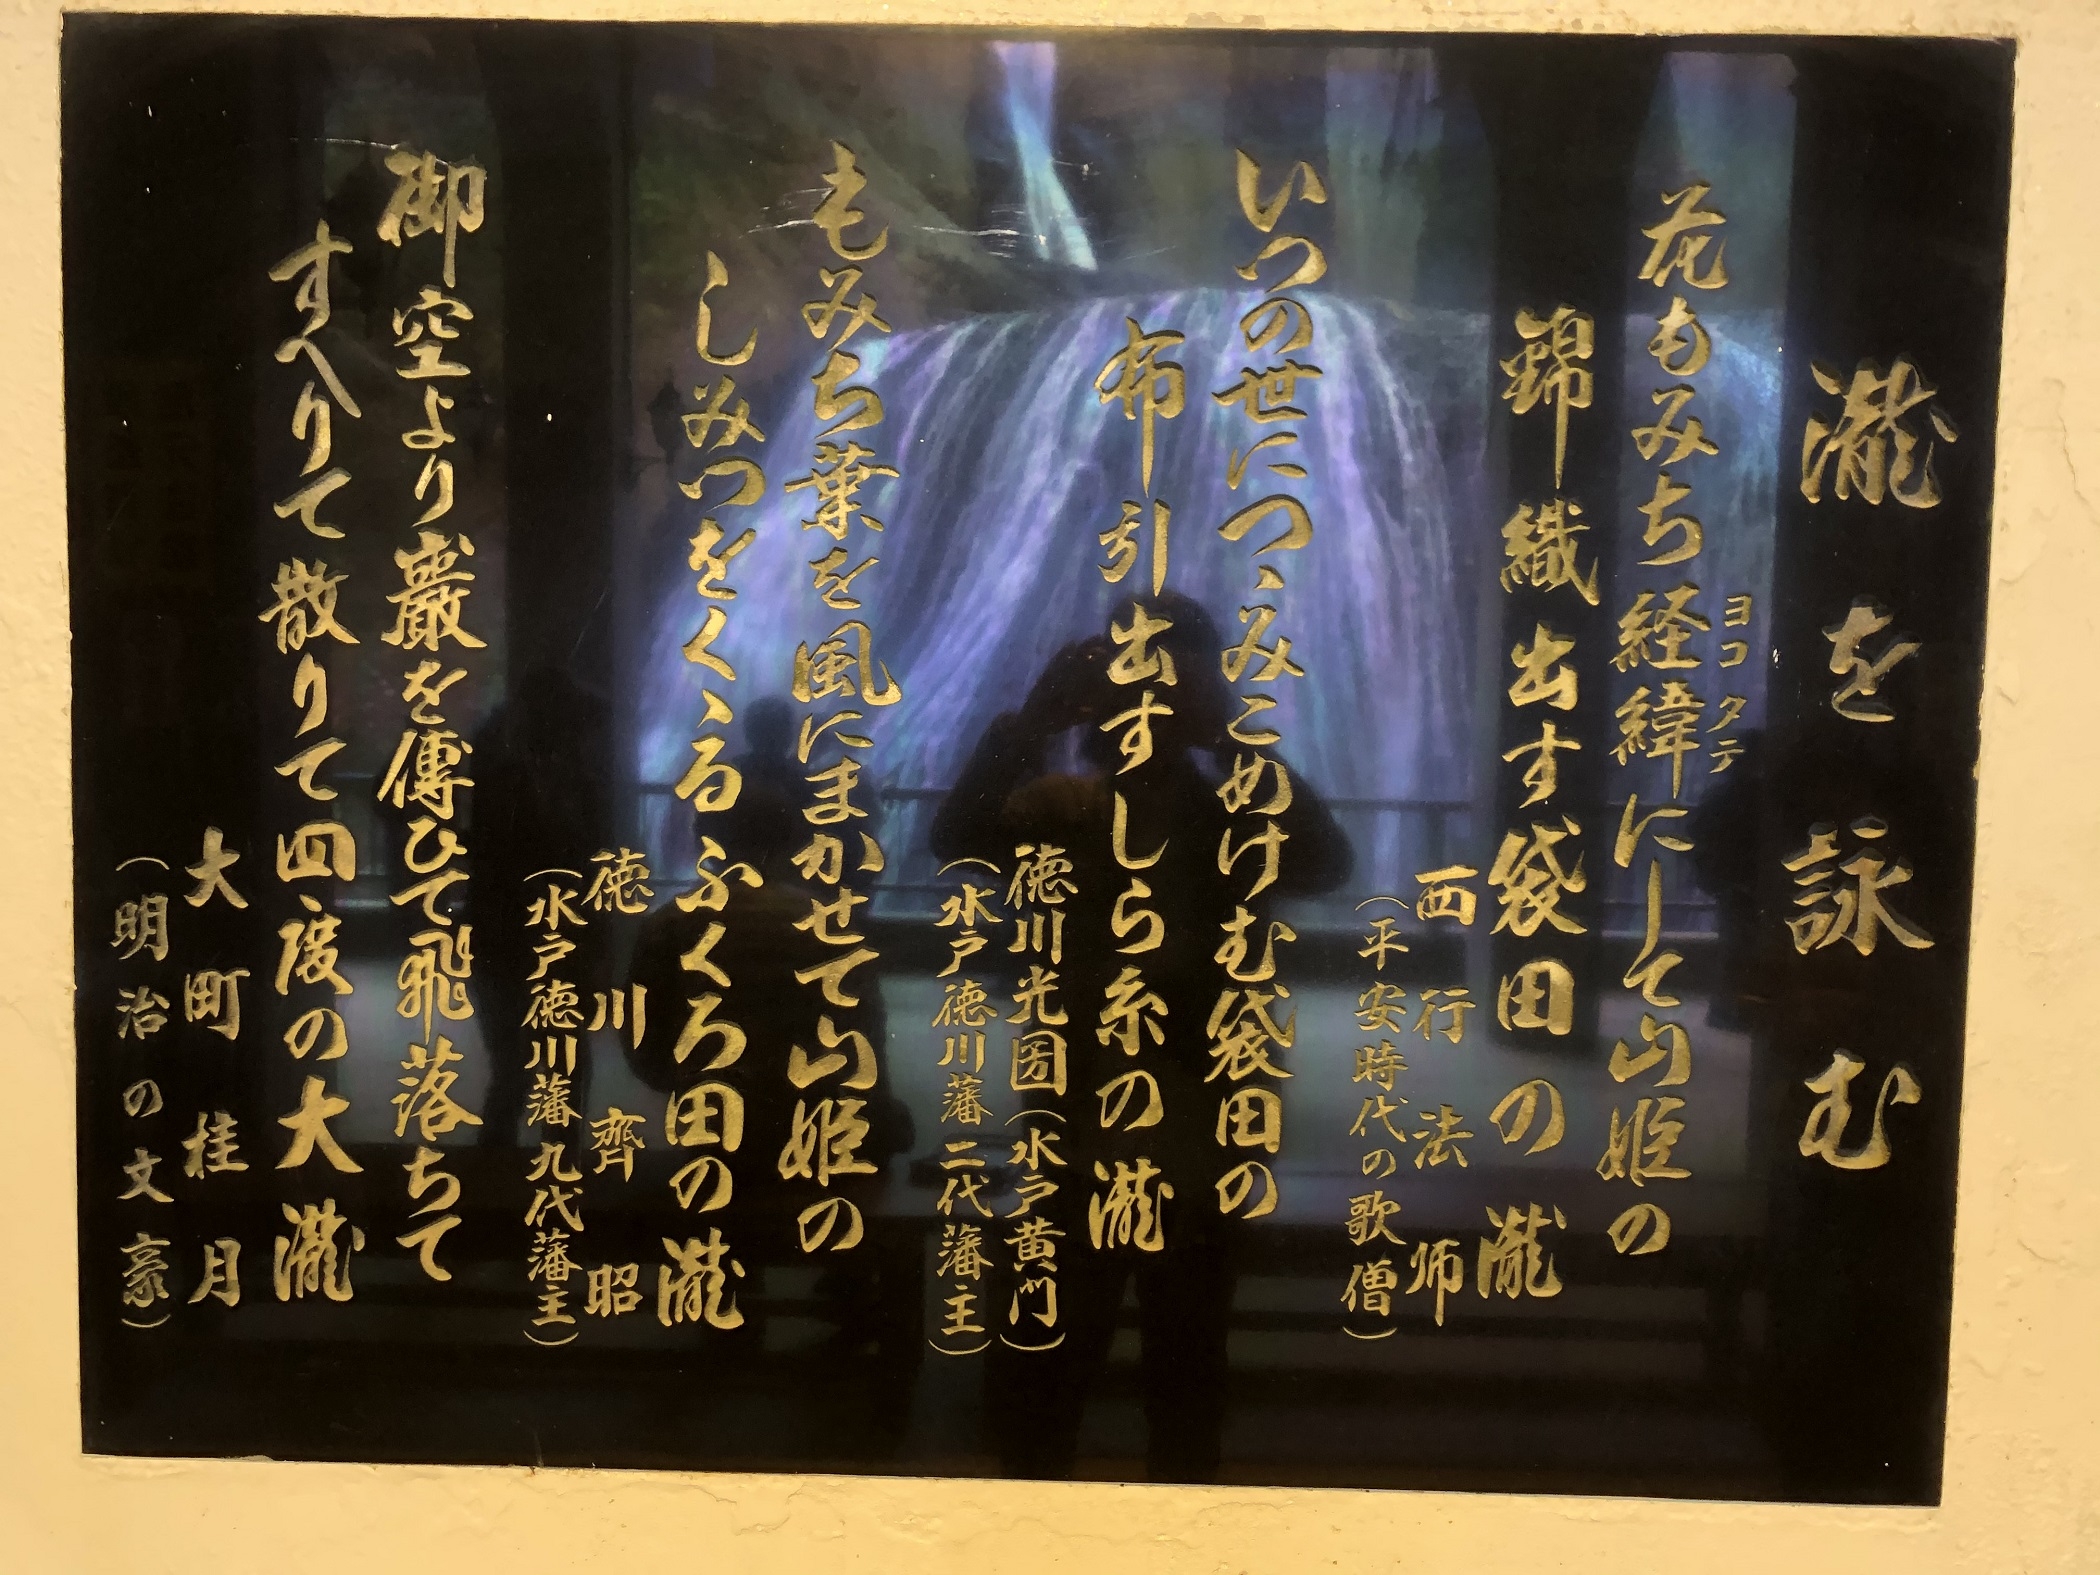 瀧を詠む
花もみち経緯にして山姫の
ヨコタテ
錦織出す袋田の瀧
西行法师
（平安時代の歌僧）
いつの世につゝみこめけむ袋田の
布引出すしら糸の瀧
徳川光圀（水戸黄門）
（水戸徳川藩二代藩主）
もみち葉を風にまかせて山姫の
しみつをくゝるふくろ田の瀧
徳川齊昭
（水戸徳川藩九代藩主）
御空より巖を傳ひて飛落ちて
すへりて散りて四度の大瀧
大町桂月
（明治の文豪）